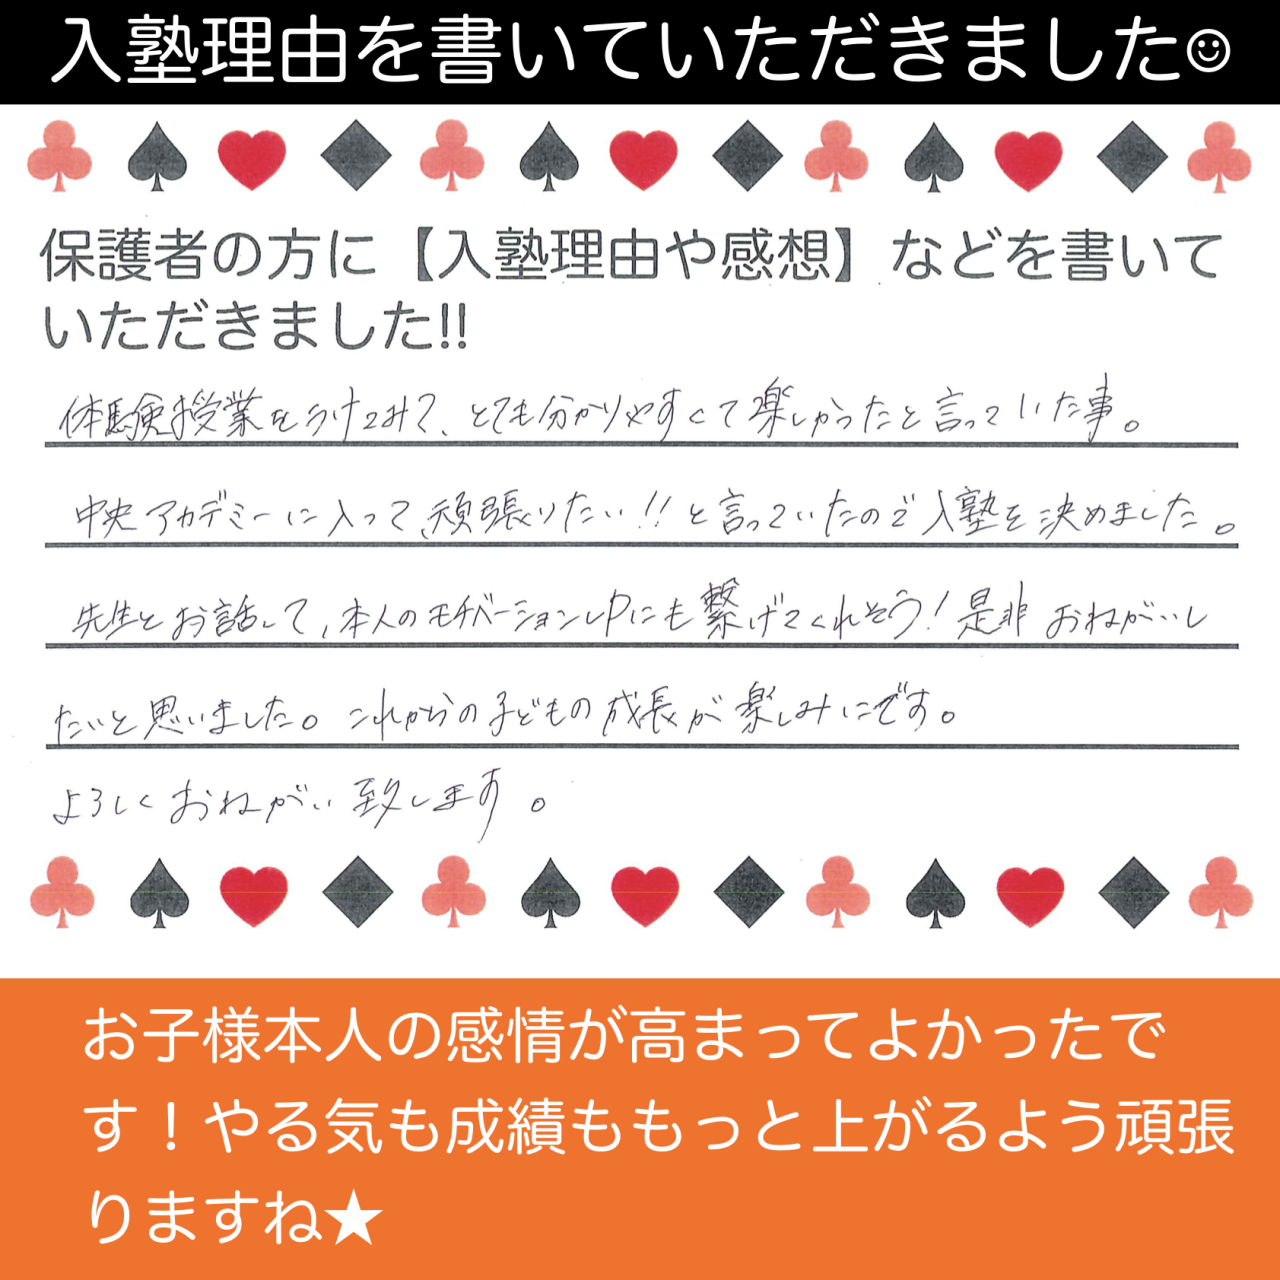 入塾理由を書いていただきました☺
保護者の方に【入塾理由や感想】などを書いて
いただきました!!
体験授業をうけてみて、とても分かりやすくて楽しかったと言っていた事。
中央アカデミーに入って、頑張りたい!!と言っていたので入塾を決めました。
先生とお話して、本人のモチベーションUPにも繋げてくれそう!是非おねがいし
たいと思いました。これからの子どもの成長が楽しみにです。
よろしくおねがい致します。
お子様本人の感情が高まってよかったで
す！やる気も成績ももっと上がるよう頑張
りますね★